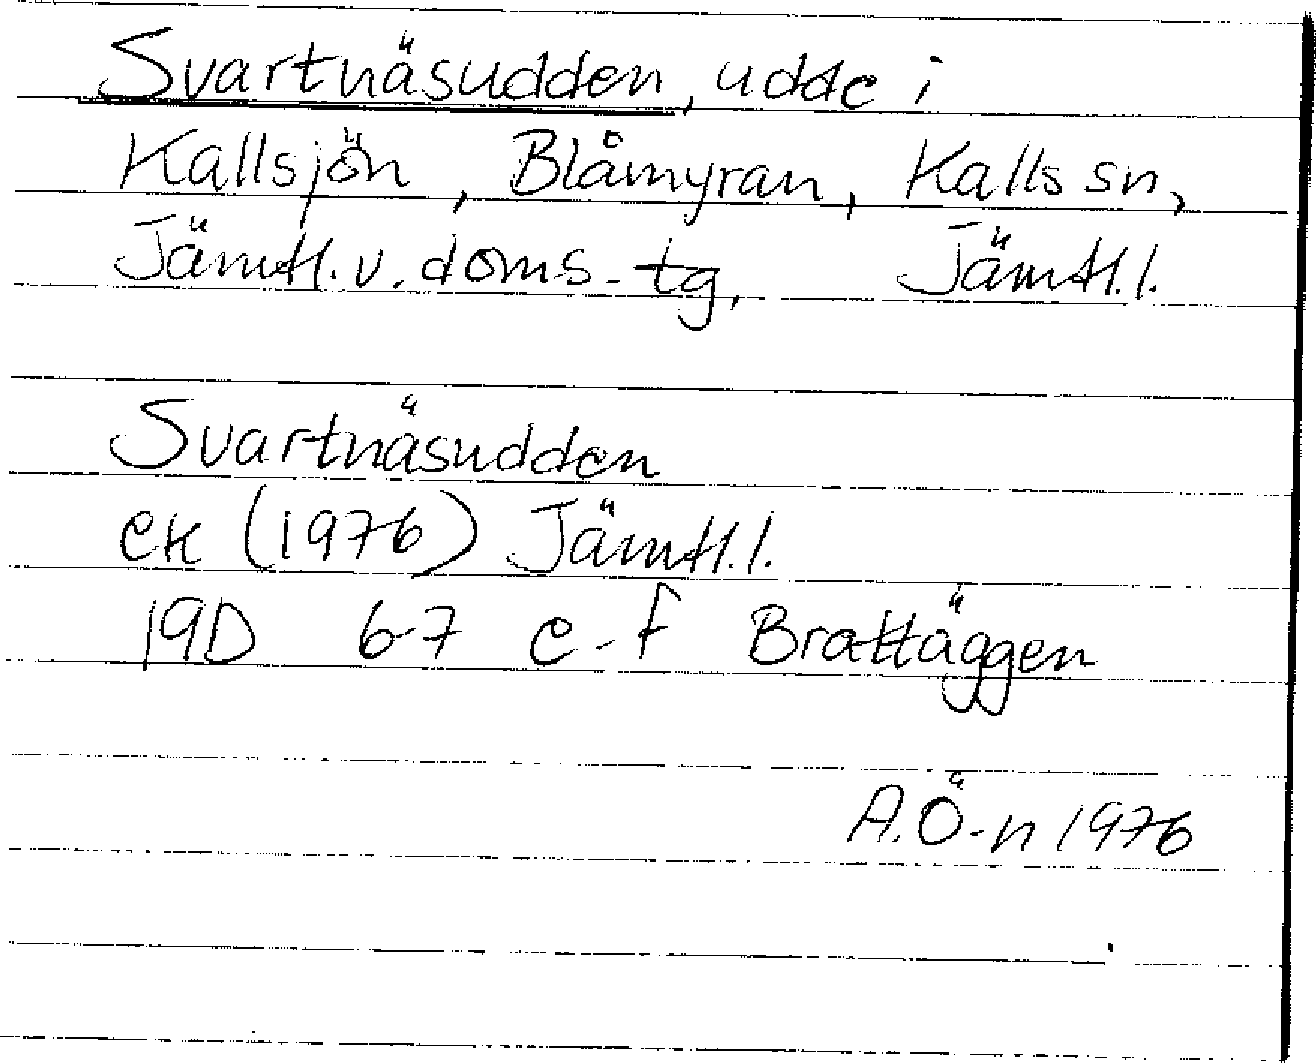 Svartnäsudden, udde i
Kallsjön, Blåmyran, Kalls sn,
Jämtl. v. doms.tg, Jämtl.l.
Svartnäsudden
ek (1976) Jämtl.l.
19D 6-7 e-f Brattäggen
A.Ö-n 1976